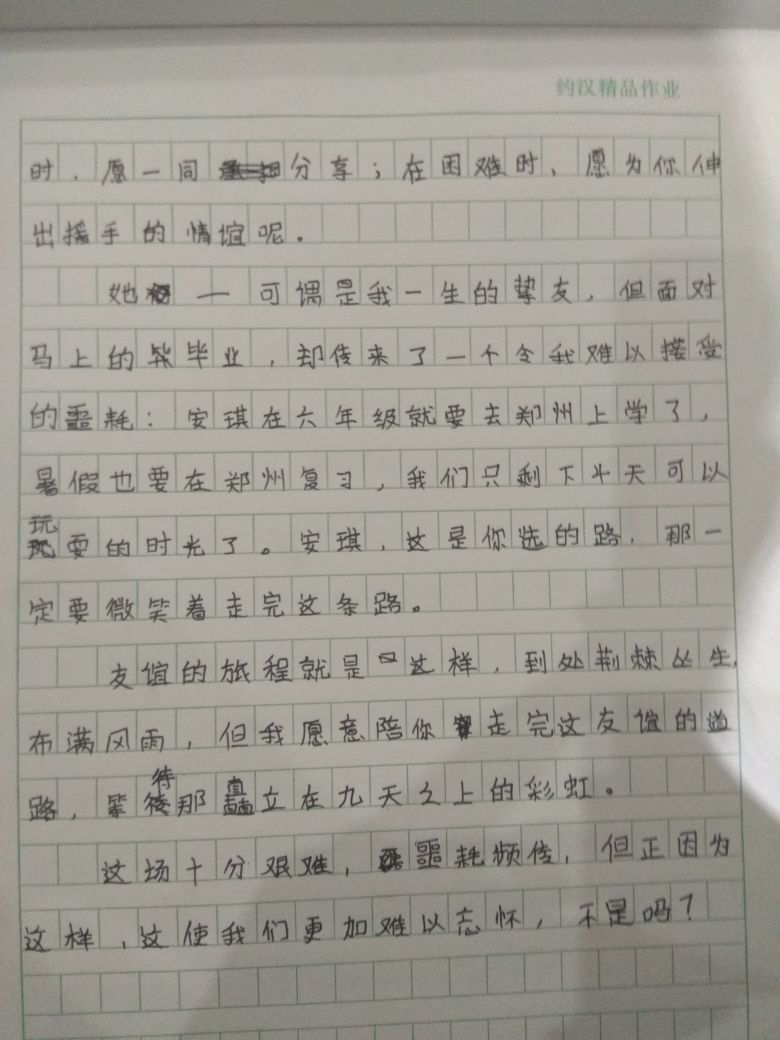 约汉精品作业
时、愿一同分享；在困难时、愿为你伸
出援手的情谊呢。
她——可谓是我一生的挚友，但面对
马上的毕业，却传来了一个令我难以接受
的噩耗：安琪在六年级就要去郑州上学了，
暑假也要在郑州复习，我们只剩下半天可以
玩耍的时光了。安琪，这是你选的路，那一
定要微笑着走完这条路。
友谊的旅程就是这样，到处荆棘丛生，
布满风雨，但我愿意陪你走完这友谊的道
路，等待那矗立在九天之上的彩虹。
这场十分艰难，噩耗频传，但正因为
这样，这使我们更加难以忘怀，不是吗？